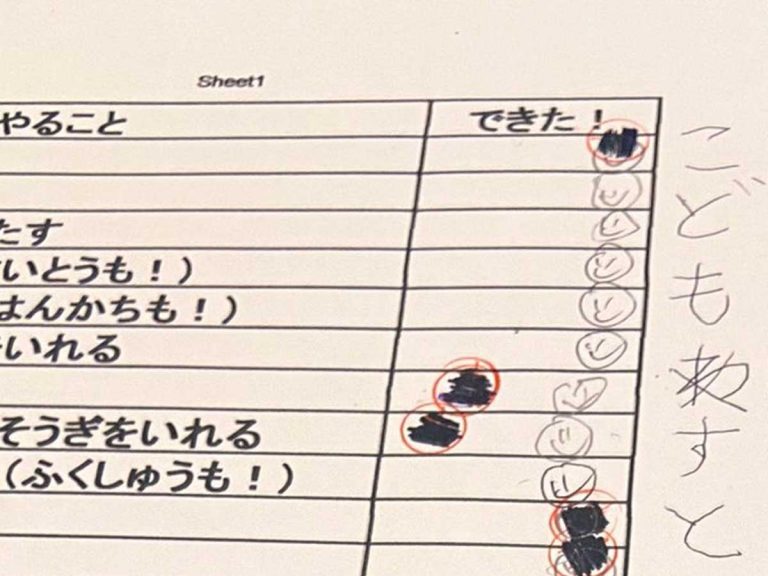 Sheet1
やること できた！
たす
いとうも！）
はんかちも！）
いれる
そうぎをいれる
（ふくしゅうも！）
こども すと